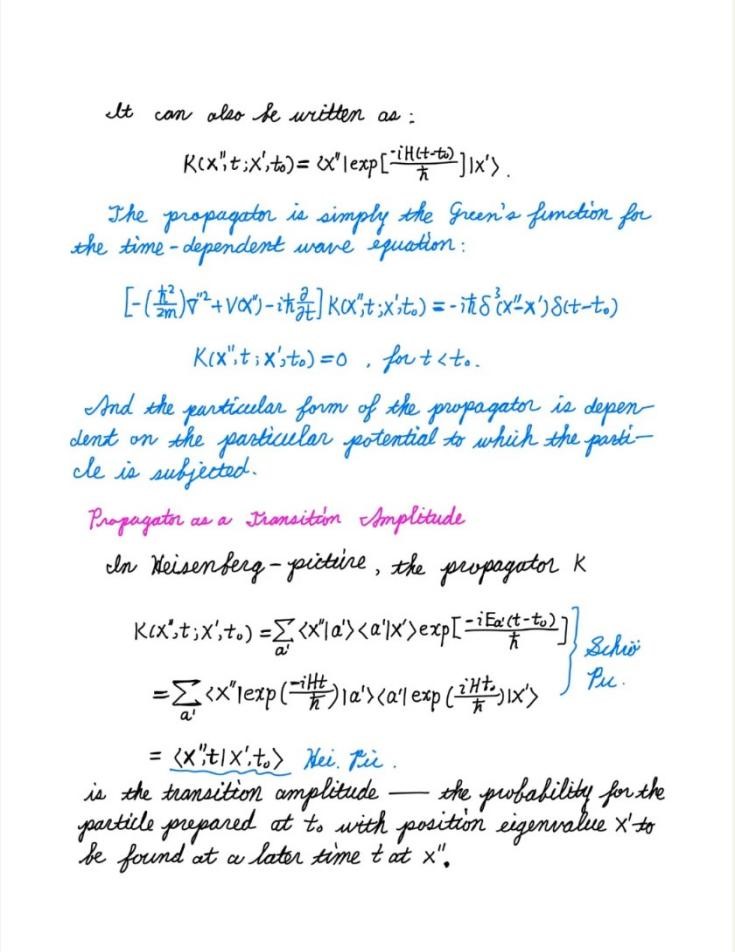 It can also be written as :
K(x'',t ; x',t₀) = ⟨x''|exp[-iH(t-t₀)/ħ]|x'⟩ .
The propagator is simply the Green's function for
the time-dependent wave equation :
[-(ħ²/2m)∇''²+V(x'')-iħ∂/∂t] K(x'',t ; x',t₀) = -iħδ³(x''-x')δ(t-t₀)
K(x'',t ; x',t₀) = 0 , for t < t₀.
And the particular form of the propagator is depen-
dent on the particular potential to which the parti-
cle is subjected.
Propagator as a Transition Amplitude
In Heisenberg-picture, the propagator K
K(x'',t ; x',t₀) = ∑a' ⟨x''|a'⟩⟨a'|x'⟩exp[-iEa'(t-t₀)/ħ]
= ∑a' ⟨x''|exp(-iHt/ħ)|a'⟩⟨a'|exp(iHt₀/ħ)|x'⟩
Schrö
Pic.
= ⟨x'',t|x',t₀⟩ Hei. Pic .
is the transition amplitude — the probability for the
particle prepared at t₀ with position eigenvalue x' to
be found at a later time t at x''.